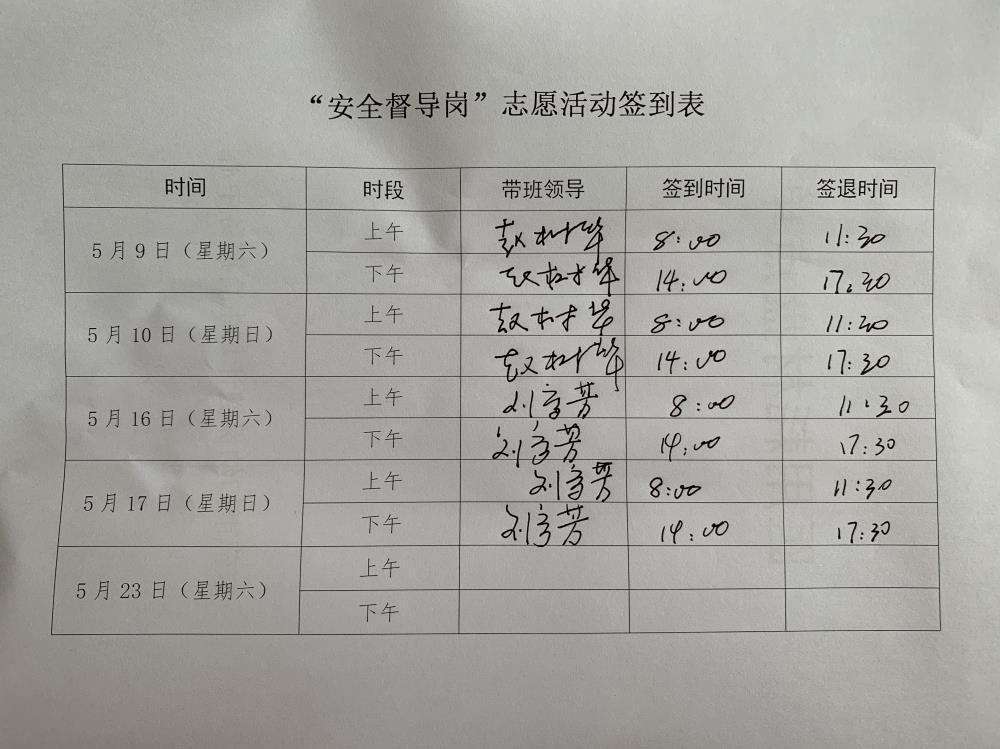 “安全督导岗”志愿活动签到表
时间 时段 带班领导 签到时间 签退时间
5月9日（星期六） 上午 赵树华 8:00 11:30
下午 赵树华 14:00 17:30
5月10日（星期日） 上午 赵树华 8:00 11:30
下午 赵树华 14:00 17:30
5月16日（星期六） 上午 刘 芳 8:00 11:30
下午 刘 芳 14:00 17:30
5月17日（星期日） 上午 刘 芳 8:00 11:30
下午 刘 芳 14:00 17:30
5月23日（星期六） 上午
下午